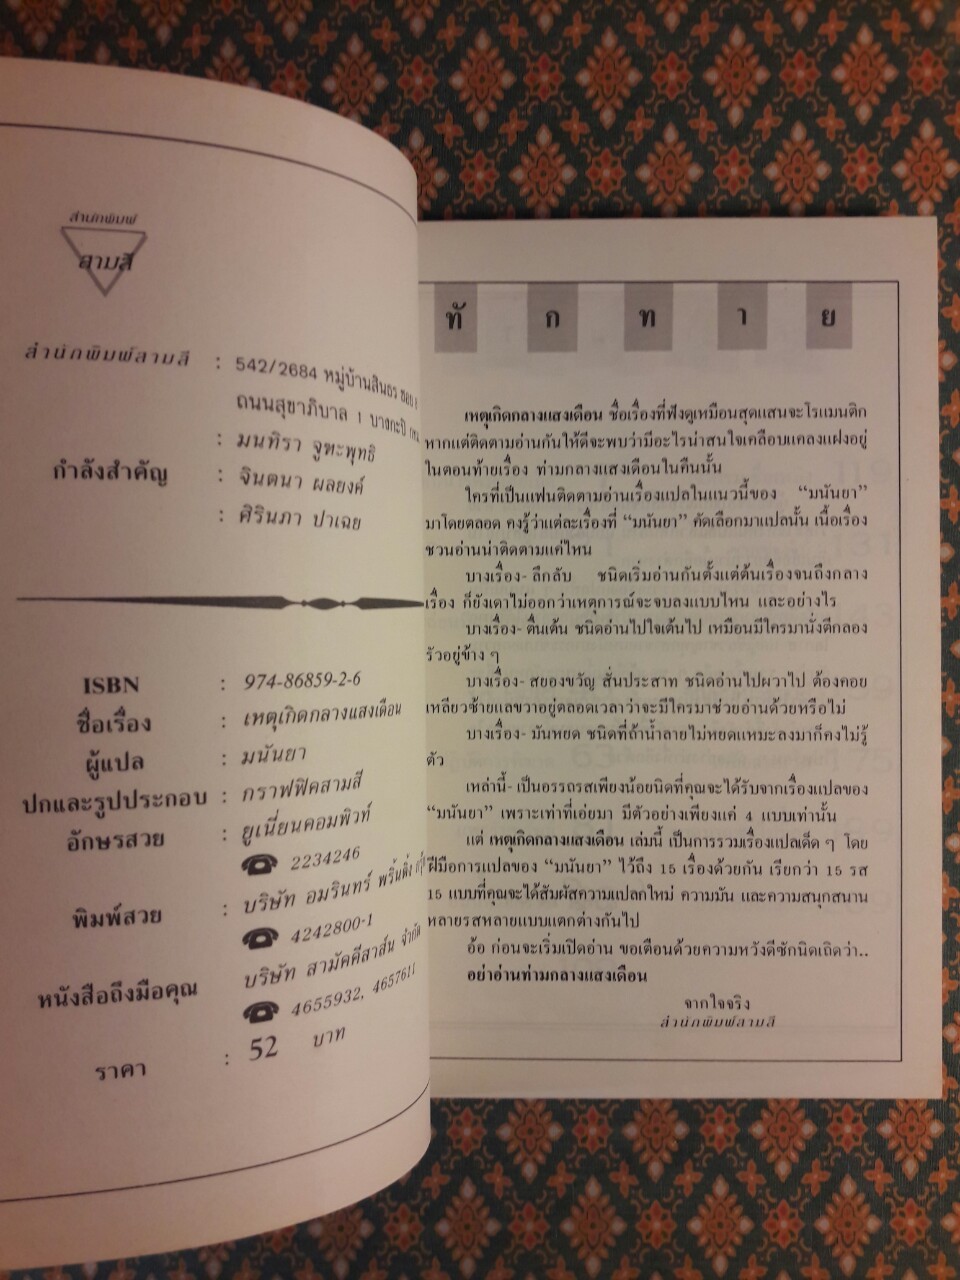 สำนักพิมพ์
สามสี
สำนักพิมพ์สามสี : 542/2684 หมู่บ้านสินธร ซอย 8
ถนนสุขาภิบาล 1 บางกะปิ กทม.
: มนทิรา จูฑะพุทธิ
กำลังสำคัญ : จินตนา ผลยงค์
: ศิรินภา ปาเฉย
ISBN : 974-86859-2-6
ชื่อเรื่อง : เหตุเกิดกลางแสงเดือน
ผู้แปล : มนันยา
ปกและรูปประกอบ : กราฟฟิคสามสี
อักษรสวย : ยูเนี่ยนคอมพิวท์
☎ 2234246
พิมพ์สวย : บริษัท อมรินทร์ พริ้นติ้ง
☎ 4242800-1
หนังสือถึงมือคุณ บริษัท สามัคคีสาส์น จำกัด
☎ 4655932, 4657611
ราคา : 52 บาท
ทักทาย
เหตุเกิดกลางแสงเดือน ชื่อเรื่องที่ฟังดูเหมือนสุดแสนจะโรแมนติก
หากแต่ติดตามอ่านกันให้ดีจะพบว่ามีอะไรน่าสนใจเคลือบแคลงแฝงอยู่
ในตอนท้ายเรื่อง ท่ามกลางแสงเดือนในคืนนั้น
ใครที่เป็นแฟนติดตามอ่านเรื่องแปลในแนวนี้ของ “มนันยา”
มาโดยตลอด คงรู้ว่าแต่ละเรื่องที่ “มนันยา” คัดเลือกมาแปลนั้น เนื้อเรื่อง
ชวนอ่านน่าติดตามแค่ไหน
บางเรื่อง- ลึกลับ ชนิดเริ่มอ่านกันตั้งแต่ต้นเรื่องจนถึงกลาง
เรื่อง ก็ยังเดาไม่ออกว่าเหตุการณ์จะจบลงแบบไหน และอย่างไร
บางเรื่อง- ตื่นเต้น ชนิดอ่านไปใจเต้นไป เหมือนมีใครมานั่งตีกลอง
รัวอยู่ข้าง ๆ
บางเรื่อง- สยองขวัญ สั่นประสาท ชนิดอ่านไปผวาไป ต้องคอย
เหลียวซ้ายแลขวาอยู่ตลอดเวลาว่าจะมีใครมาช่วยอ่านด้วยหรือไม่
บางเรื่อง- มันหยด ชนิดที่ถ้าน้ำลายไม่หยดแหมะลงมาก็คงไม่รู้
ตัว
เหล่านี้- เป็นอรรถรสเพียงน้อยนิดที่คุณจะได้รับจากเรื่องแปลของ
“มนันยา” เพราะเท่าที่เอ่ยมา มีตัวอย่างเพียงแค่ 4 แบบเท่านั้น
แต่ เหตุเกิดกลางแสงเดือน เล่มนี้ เป็นการรวมเรื่องแปลเด็ด ๆ โดย
ฝีมือการแปลของ “มนันยา” ไว้ถึง 15 เรื่องด้วยกัน เรียกว่า 15 รส
15 แบบที่คุณจะได้สัมผัสความแปลกใหม่ ความมัน และความสนุกสนาน
หลายรสหลายแบบแตกต่างกันไป
อ้อ ก่อนจะเริ่มเปิดอ่าน ขอเตือนด้วยความหวังดีซักนิดเถิดว่า..
อย่าอ่านท่ามกลางแสงเดือน
จากใจจริง
สำนักพิมพ์สามสี